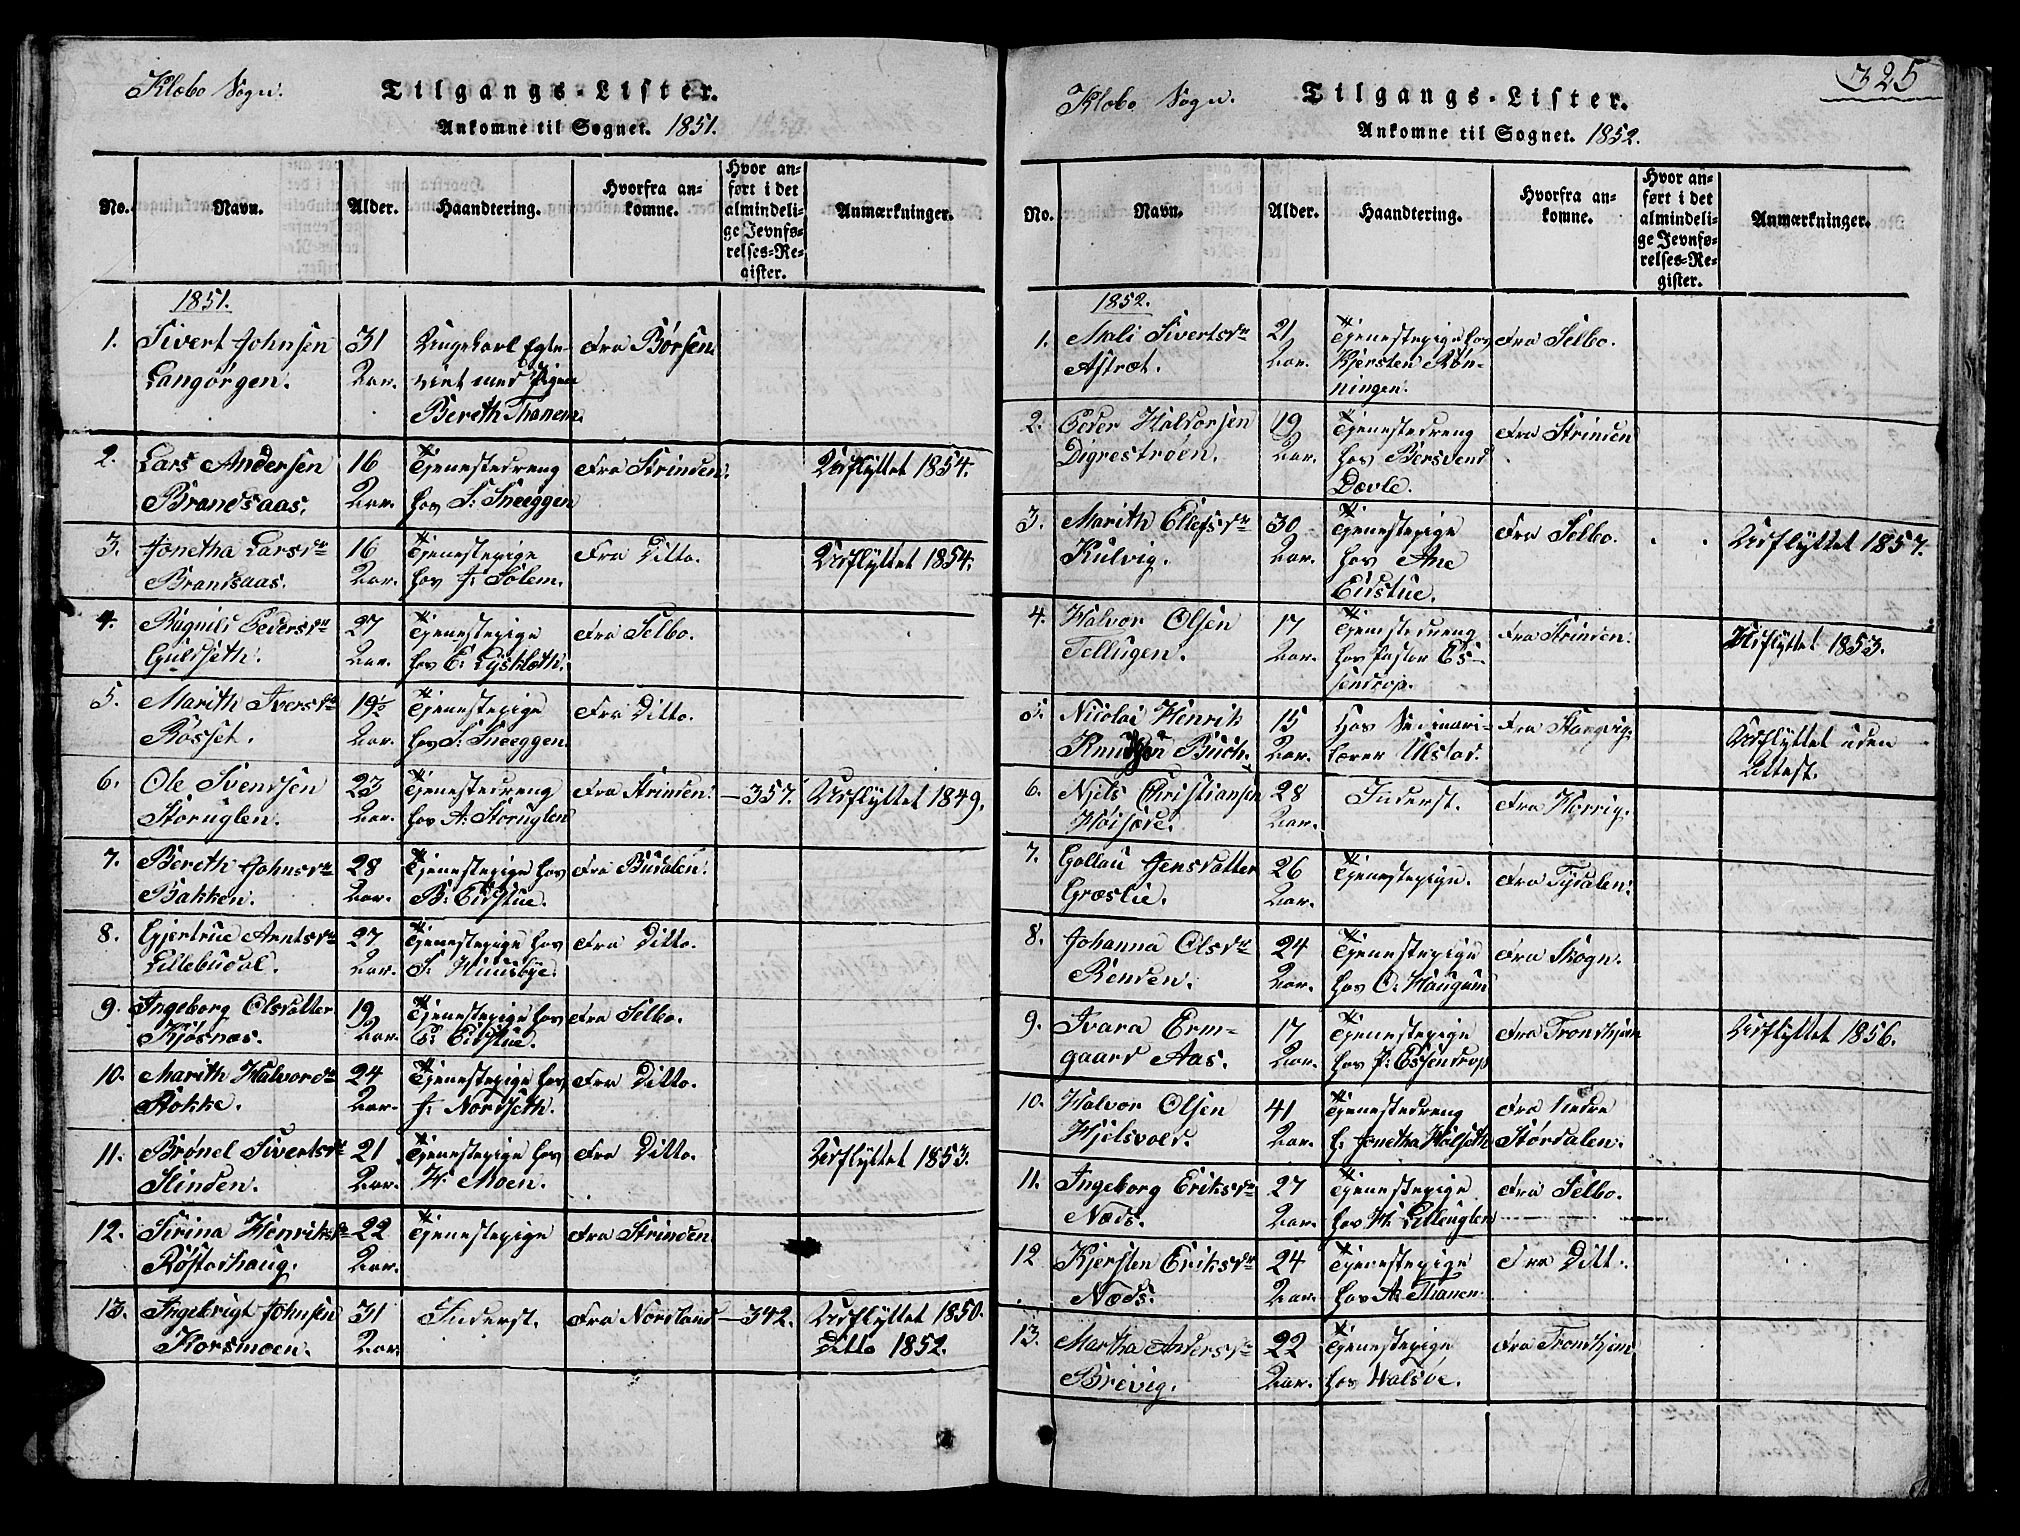 Klæbo Sogn.
Tilgangs-Lister.
Ankomne til Sognet. 1851.
No. Navn. Alder. Haandtering. Hvorfra ankomne. Hvor anført i det almindelige Jevnførelses-Register. Anmærkninger.
1851.
1. Sivert Johnsen 31 Ungekarl Egte- Fra Børsen.
Langørgen. Aar. viet med Pigen
Bereth Thanem.
2. Lars Andersen 16 Tjenestedreng Fra Strinden. Udflyttet 1854.
Brandsaas. Aar. hos S: Sneeggen
3. Jonetha Larsdr 16 Tjenestepige Fra Ditto. Udflyttet 1854.
Brandsaas. Aar. hos J: Solem.
4. Ragnild Pedersdr 27 Tjenestepige Fra Selbo.
Guldseth. Aar. hos E: Lysklæth.
5. Marith Iversdr 19½ Tjenestepige Fra Ditto.
Rosset. Aar. hos S: Sneeggen.
6. Ole Svendsen 23 Tjenestedreng Fra Strinden. —357. Udflyttet 1849.
Storuglen. Aar. hos A: Storuglen
7. Bereth Johnsdr 28 Tjenestepige hos Fra Budalen.
Bakken. Aar. B: Eidstue.
8. Gjertrue Arntsdr 27 Tjenestepige hos Fra Ditto.
Lillebudal. Aar. S: Huusbye.
9. Ingeborg Olsdatter 19 Tjenestepige hos Fra Selbo.
Kjøsnæs. Aar. E: Eidstue.
10. Marith Halvordr 24 Tjenestepige hos Fra Ditto.
Stokke. Aar. J: Nordseth.
11. Brønel Sivertsdr 21 Tjenestepige hos Fra Ditto. Udflyttet 1853.
Slinden. Aar. H: Moen.
12. Sirina Henriksdr 22 Tjenestepige Fra Strinden
Røstadhaug. Aar.
13. Ingebrigt Johnsen 31 Inderst. Fra Nordland —342. Udflyttet 1850.
Korsmoen. Aar. Ditto 1852.
325
Klæbo Sogn.
Tilgangs-Lister.
Ankomne til Sognet. 1852.
No. Navn. Alder. Haandtering. Hvorfra ankomne. Hvor anført i det almindelige Jevnførelses-Register. Anmærkninger.
1852.
1. Mali Sivertsdr 21 Tjenestepige hos Fra Selbo.
Aftræt. Aar. Kjersten Røn-
ningen.
2. Peder Halvorsen 19 Tjenestedreng Fra Strinden
Digrestrøen. Aar. hos Bersvend
Dævle.
3. Marith Ellefsdr 30 Tjenestepige Fra Selbo. Udflyttet 1857.
Kulvig. Aar. hos Ane
Eidstue.
4. Halvor Olsen 17 Tjenestedreng Fra Strinden. Udflyttet 1853.
Tellugen. Aar. hos Pastor Es-
sendrop.
5. Nicolai Henrik 15 Hos Seminari- Fra Stangvig. Udflyttet uden
Knudsen Buch. Aar. lærer Ulstad. Attest.
6. Njels Christiansen 28 Inderst. Fra Horrig.
Høisæde. Aar.
7. Gollau Jensdatter 26 Tjenestepige. Fra Tydalen.
Græslie. Aar.
8. Johanna Olsdr 24 Tjenestepige Fra Skogn.
Renden. Aar. hos O: Haugum
9. Ivara Erm- 17 Tjenestepige Fra Trondhjem Udflyttet 1856.
gaard Aas. Aar. hos P: Essendrop
10. Halvor Olsen 41 Tjenestedreng Fra Nedre
Hjelsvold. Aar. h: Jonetha Halseth Størdalen.
11. Ingeborg Eriksdr 27 Tjenestepige Fra Selbo.
Næds. Aar. hos H: Lilleuglen
12 Kjersten Eriksdr 24 Tjenestepige Fra Ditt.
Næds. Aar. hos A: Thanem.
13. Martha Andersdr 22 Tjenestepige Fra Trondhjem
Brevig. Aar. hos Halsøe.